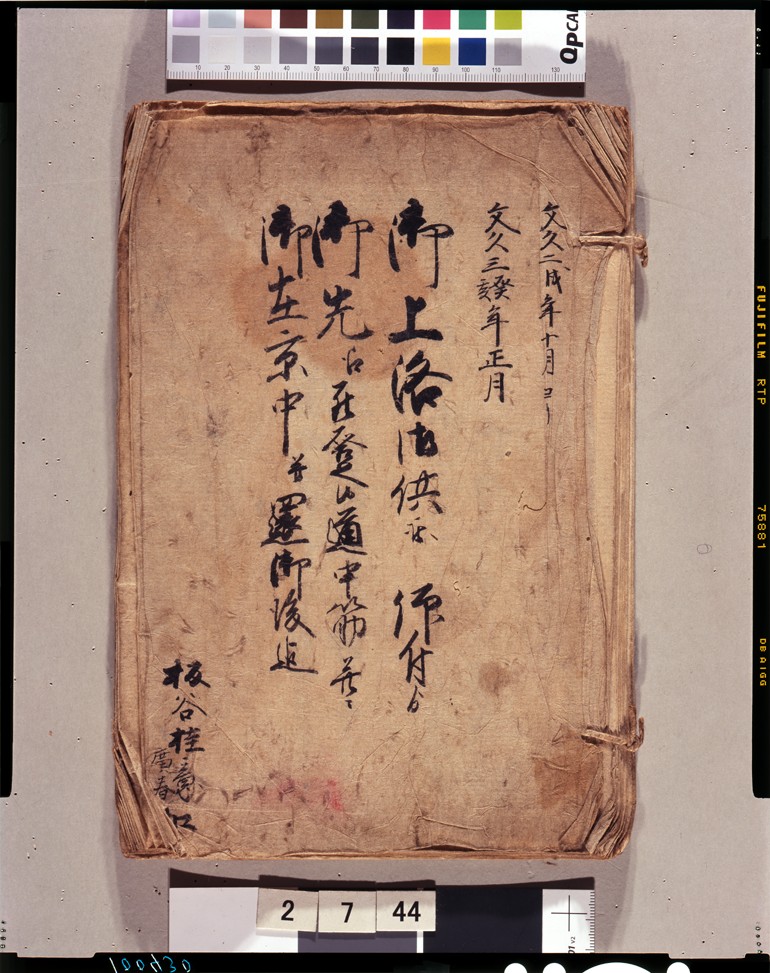 文久二戌年十月ヨリ
文久三癸亥年正月
御上洛御供被 仰付ゟ
御先ゟ 発登山道中筋并ニ
御在京中并還御後迄
板谷桂意
廣春
QPCA
10 20 30 40 50 60 70 80 90 100 110 130
2 7 44
FUJIFILM RTP 75881
100430